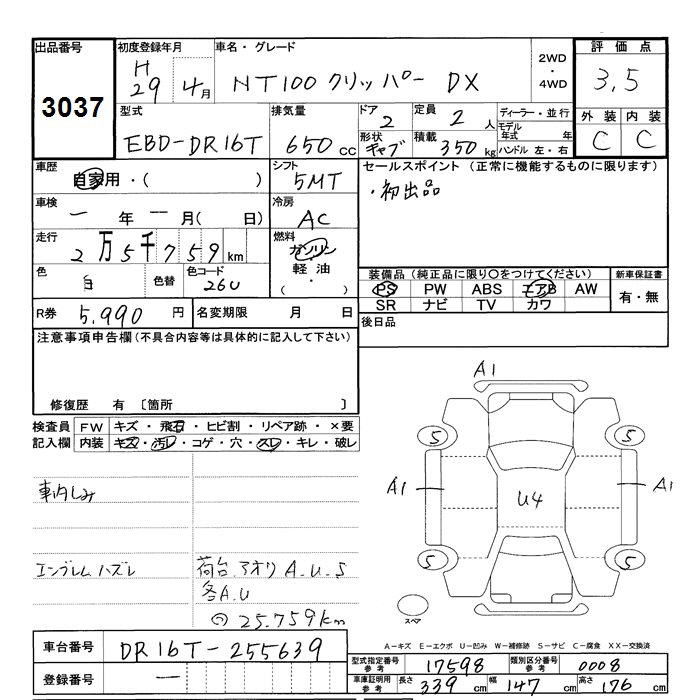 出品番号 初度登録年月 車名・グレード 2WD・4WD 評価点
3037 H29 4月 NT100 クリッパー DX 3.5
型式 排気量 ドア 定員 ディーラー・並行 外装 内装
EBD-DR16T 650cc 2 2人 モデル年式 年 C C
形状 キャブ 積載 350kg ハンドル 左・右
車歴 自家用・( ) シフト 5MT セールスポイント (正常に機能するものに限ります)
・初出品
車検 一年一月( 日) 冷房 AC
走行 2万5千759km 燃料 ガソリン 軽油・( )
色 白 色替 色コード 26U
装備品(純正品に限り〇をつけてください) 新車保証書
PS PW ABS エアB AW 有・無
SR ナビ TV カワ
R券 5,990円 名変期限 月 日 後日品
注意事項申告欄(不具合内容等は具体的に記入して下さい)
修復歴 有 〔箇所 〕
検査員記入欄 FW キズ・飛石・ヒビ割・リペア跡・×要
内装 キズ・汚レ・コゲ・穴・スレ・キレ・破レ
車内しみ
エンブレムハズレ 荷台.アオリ A.U.S
各A.U
25.759km
A1
5 5
A1 U4 A1
5 5
スペア
A-キズ E-エクボ U-凹み W-補修跡 S-サビ C-腐食 XX-交換済
車台番号 DR16T-255639
登録番号 一
型式指定番号参考 17598 類別区分番号参考 0008
車庫証明用参考 長さ 339cm 幅 147cm 高さ 176cm